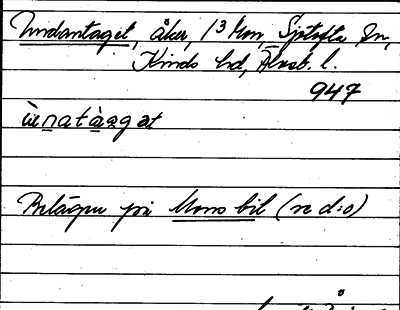 Undantaget, åker, 1/3 Mon, Sjötofta sn,
Kinds hd, Älvsb. l.
947
ùnatàꞬgət
Belägen på Mons bil (se d:o)